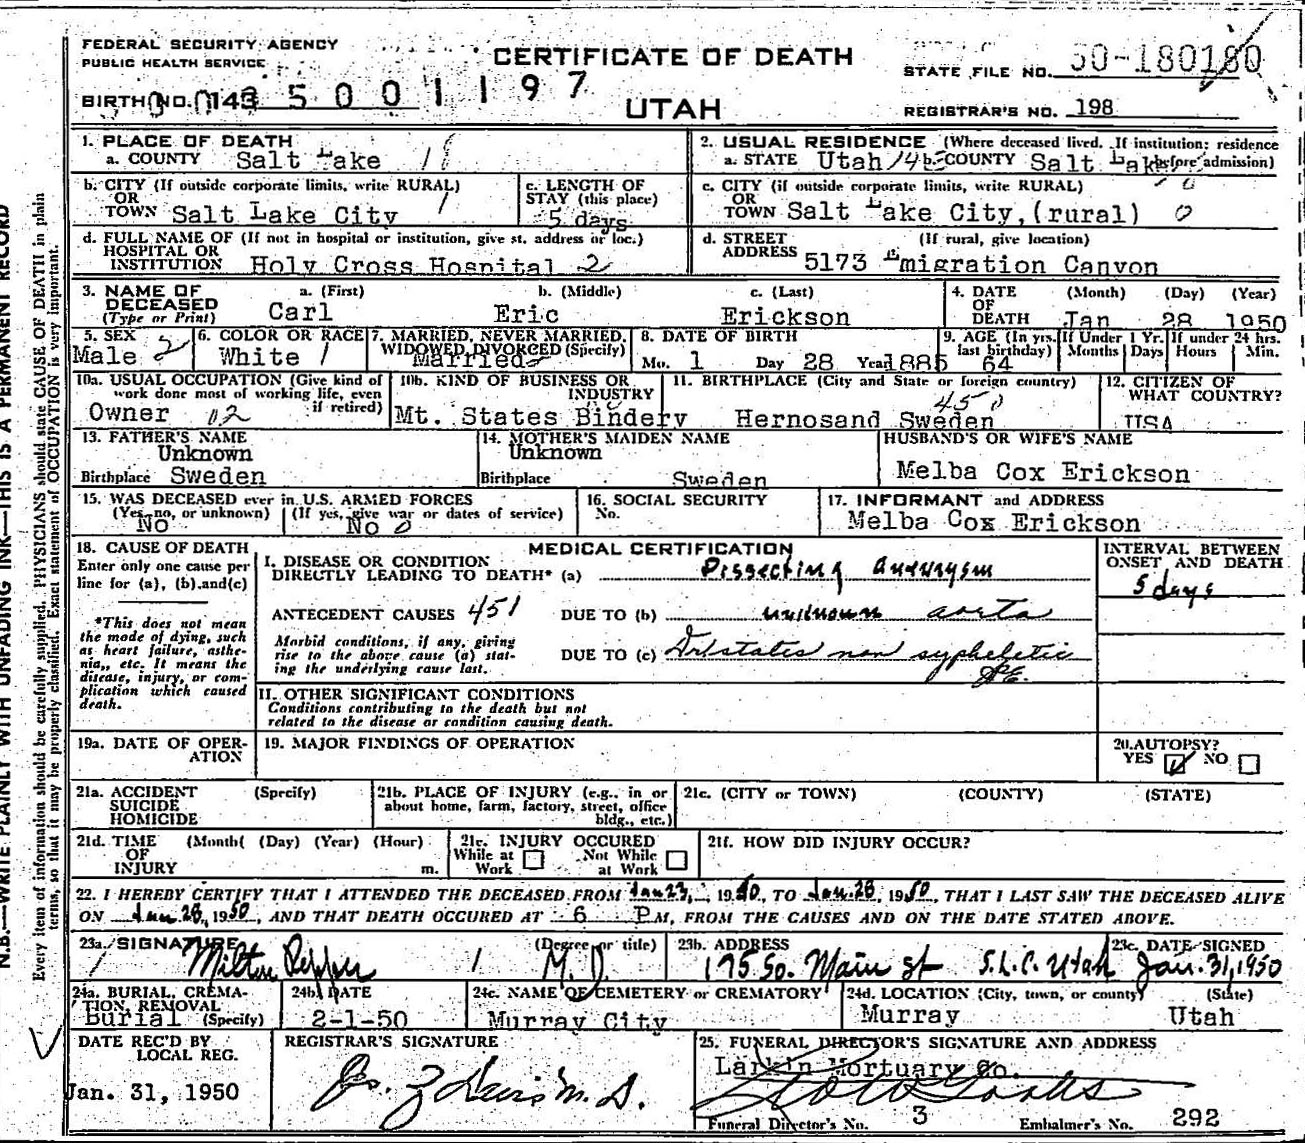 FEDERAL SECURITY AGENCY
PUBLIC HEALTH SERVICE
BIRTH NO. 143 5001197
CERTIFICATE OF DEATH
UTAH
STATE FILE NO. 50-180180
REGISTRAR'S NO. 198
1. PLACE OF DEATH
a. COUNTY Salt Lake 18
2. USUAL RESIDENCE (Where deceased lived. If institution: residence before admission)
a. STATE Utah b. COUNTY Salt Lake
b. CITY (If outside corporate limits, write RURAL)
OR
TOWN Salt Lake City 1
c. LENGTH OF
STAY (this place)
5 days
c. CITY (if outside corporate limits, write RURAL)
OR
TOWN Salt Lake City, (rural) 0
d. FULL NAME OF (If not in hospital or institution, give st. address or loc.)
HOSPITAL OR
INSTITUTION Holy Cross Hospital 2
d. STREET (If rural, give location)
ADDRESS 5173 Emigration Canyon
3. NAME OF
DECEASED
(Type or Print)
a. (First) b. (Middle) c. (Last)
Carl Eric Erickson
4. DATE (Month) (Day) (Year)
OF
DEATH Jan 28 1950
5. SEX
Male 2
6. COLOR OR RACE
White 1
7. MARRIED, NEVER MARRIED,
WIDOWED, DIVORCED (Specify)
Married
8. DATE OF BIRTH
Mo. 1 Day 28 Year 1885
9. AGE (In yrs.
last birthday)
64
If Under 1 Yr.
Months Days
If under 24 hrs.
Hours Min.
10a. USUAL OCCUPATION (Give kind of
work done most of working life, even
if retired)
Owner 02
10b. KIND OF BUSINESS OR
INDUSTRY
Mt. States Bindery
11. BIRTHPLACE (City and State or foreign country)
450
Hernosand Sweden
12. CITIZEN OF
WHAT COUNTRY?
USA
13. FATHER'S NAME
Unknown
Birthplace Sweden
14. MOTHER'S MAIDEN NAME
Unknown
Birthplace Sweden
HUSBAND'S OR WIFE'S NAME
Melba Cox Erickson
15. WAS DECEASED ever in U.S. ARMED FORCES
(Yes, no, or unknown) (If yes, give war or dates of service)
No No 0
16. SOCIAL SECURITY
No.
17. INFORMANT and ADDRESS
Melba Cox Erickson
18. CAUSE OF DEATH
Enter only one cause per
line for (a), (b), and (c)
*This does not mean
the mode of dying, such
as heart failure, asthe-
nia,, etc. It means the
disease, injury, or com-
plication which caused
death.
MEDICAL CERTIFICATION
I. DISEASE OR CONDITION
DIRECTLY LEADING TO DEATH* (a) Dissecting aneurysm
ANTECEDENT CAUSES 451 DUE TO (b) unknown aorta
Morbid conditions, if any, giving
rise to the above cause (a) stat-
ing the underlying cause last.
DUE TO (c) non sypheletic
INTERVAL BETWEEN
ONSET AND DEATH
5 days
II. OTHER SIGNIFICANT CONDITIONS
Conditions contributing to the death but not
related to the disease or condition causing death.
19a. DATE OF OPER-
ATION
19. MAJOR FINDINGS OF OPERATION
20. AUTOPSY?
YES NO
21a. ACCIDENT (Specify)
SUICIDE
HOMICIDE
21b. PLACE OF INJURY (e.g., in or
about home, farm, factory, street, office
bldg., etc.)
21c. (CITY or TOWN) (COUNTY) (STATE)
21d. TIME (Month( (Day) (Year) (Hour)
OF
INJURY m.
21e. INJURY OCCURED
While at Work
Not While at Work
21f. HOW DID INJURY OCCUR?
22. I HEREBY CERTIFY THAT I ATTENDED THE DECEASED FROM Jan 23, 1950, TO Jan. 28, 1950, THAT I LAST SAW THE DECEASED ALIVE
ON Jan. 28, 1950, AND THAT DEATH OCCURED AT 6 P M, FROM THE CAUSES AND ON THE DATE STATED ABOVE.
23a. SIGNATURE (Degree or title)
Milton Pepper M.D.
23b. ADDRESS
175 So. Main st S.L.C. Utah
23c. DATE SIGNED
Jan. 31, 1950
24a. BURIAL, CREMA-
TION, REMOVAL
Burial (Specify)
24b. DATE
2-1-50
24c. NAME OF CEMETERY or CREMATORY
Murray City
24d. LOCATION (City, town, or county) (State)
Murray Utah
DATE REC'D BY
LOCAL REG.
Jan. 31, 1950
REGISTRAR'S SIGNATURE
M.D.
25. FUNERAL DIRECTOR'S SIGNATURE AND ADDRESS
Larkin Mortuary Co.
Funeral Director's No. 3 Embalmer's No. 292
N.B.—WRITE PLAINLY WITH UNFADING INK—THIS IS A PERMANENT RECORD
Every item of information should be carefully supplied. PHYSICIANS should state CAUSE OF DEATH in plain
terms, so that it may be properly classified. Exact statement of OCCUPATION is very important.